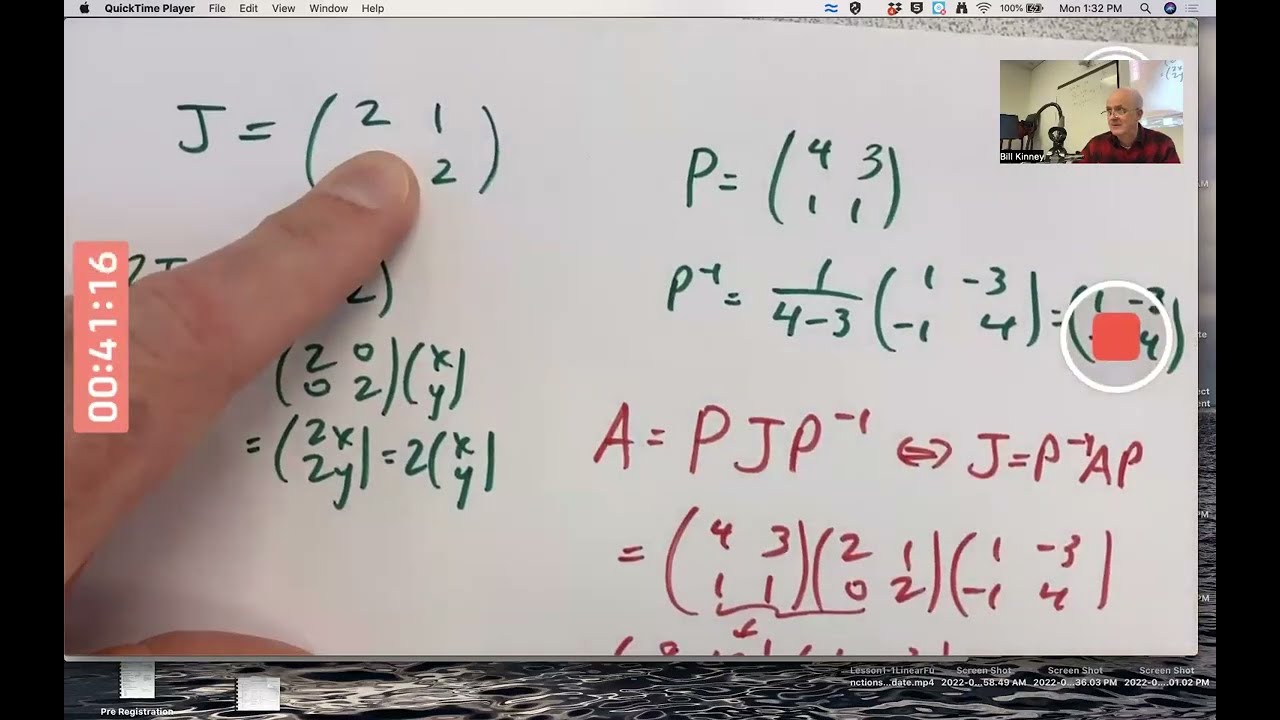 QuickTime Player File Edit View Window Help 100% Mon 1:32 PM
Bill Kinney
00:41:16
J = ( 2 1
2 )
P = ( 4 3
1 1 )
P⁻¹ = 1/(4-3) ( 1 -3
-1 4 ) = ( 1 -3
4 )
2I
2 )
( 2 0
0 2 ) ( x
y )
= ( 2x
2y ) = 2 ( x
y )
A = P J P⁻¹ ⇔ J = P⁻¹AP
= ( 4 3
1 1 ) ( 2 1
0 2 ) ( 1 -3
-1 4 )
Pre Registration
Lesson1-1LinearFu
nctions...date.mp4
Screen Shot
2022-0...58.49 AM
Screen Shot
2022-0...36.03 PM
Screen Shot
2022-0...01.02 PM